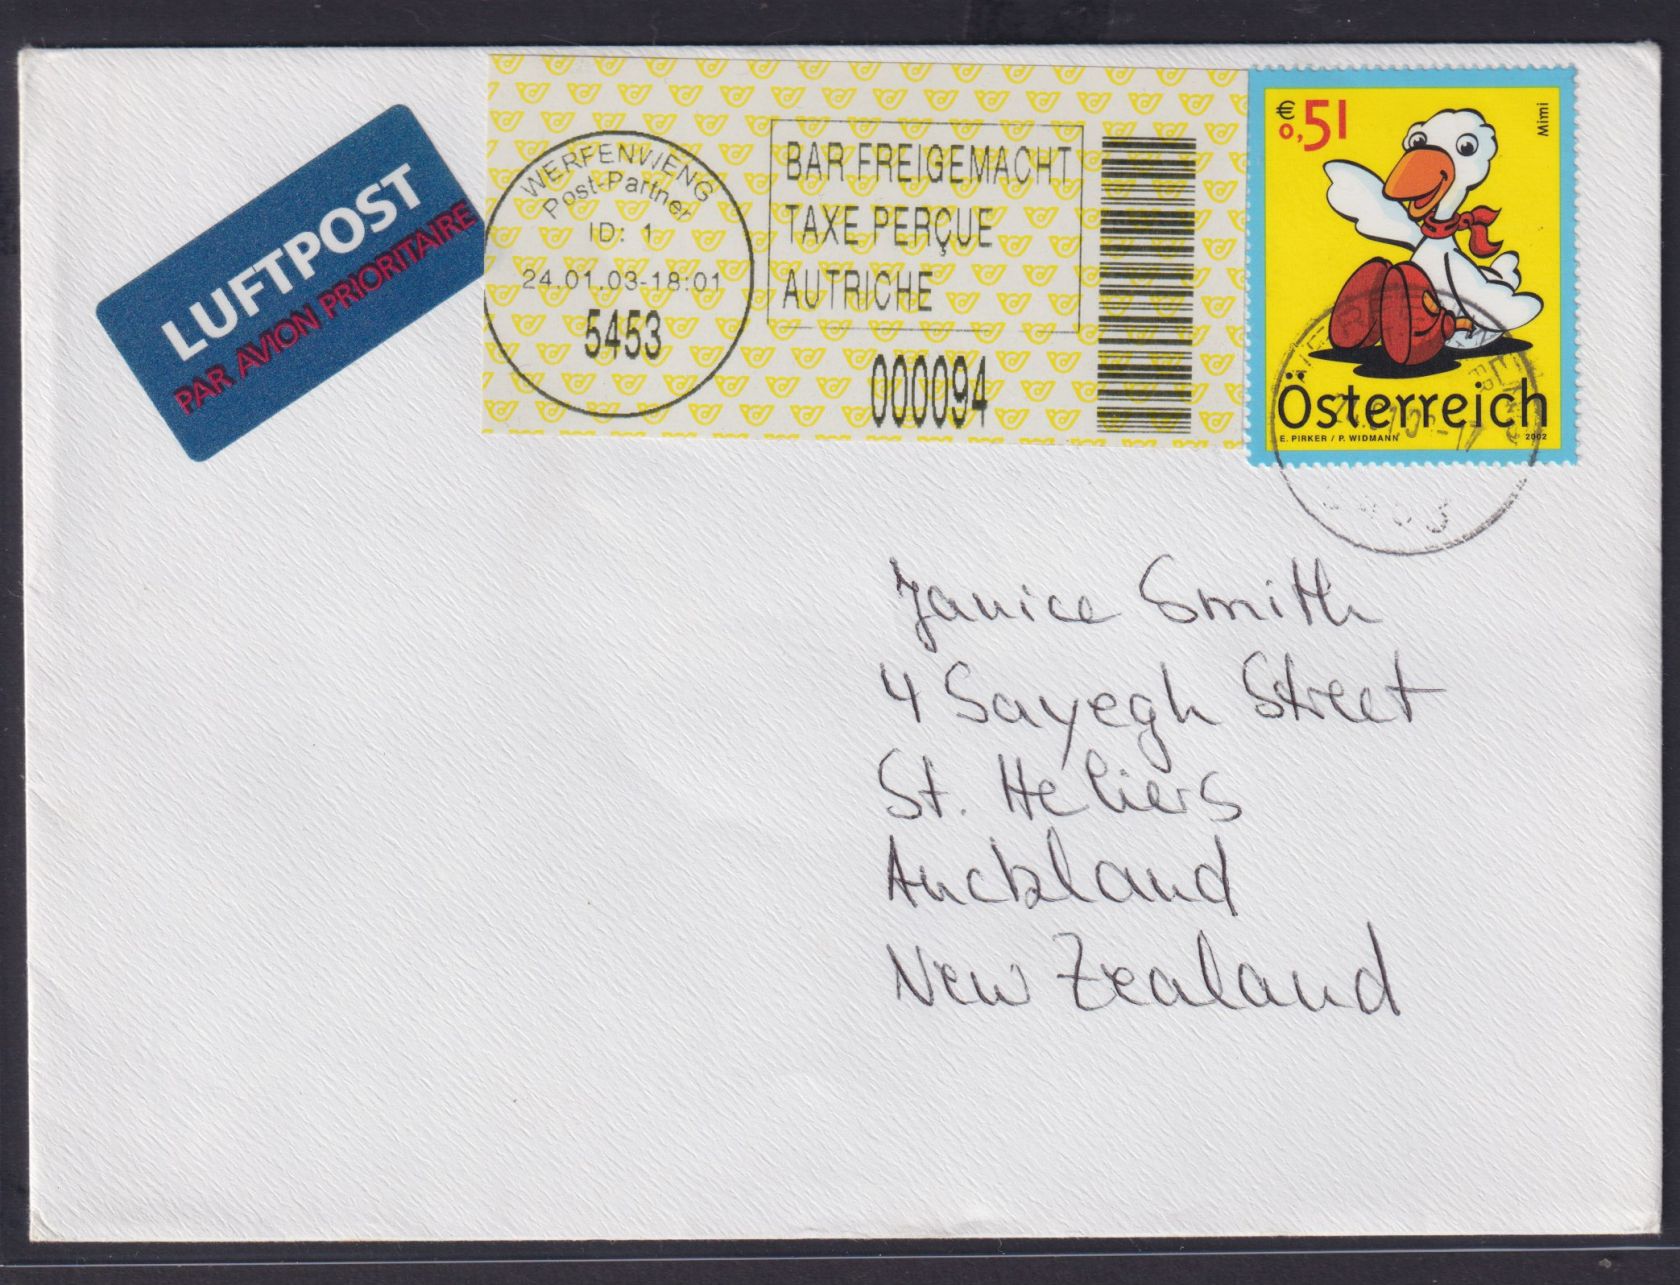 LUFTPOST
PAR AVION PRIORITAIRE
WERFENWENG
Post-Partner
ID: 1
24.01.03-18:01
5453
BAR FREIGEMACHT
TAXE PERÇUE
AUTRICHE
000094
€ 0,51
Mimi
Österreich
E. PIRKER / P. WIDMANN
2002
Janice Smith
4 Sayegh Street
St. Heliers
Auckland
New Zealand